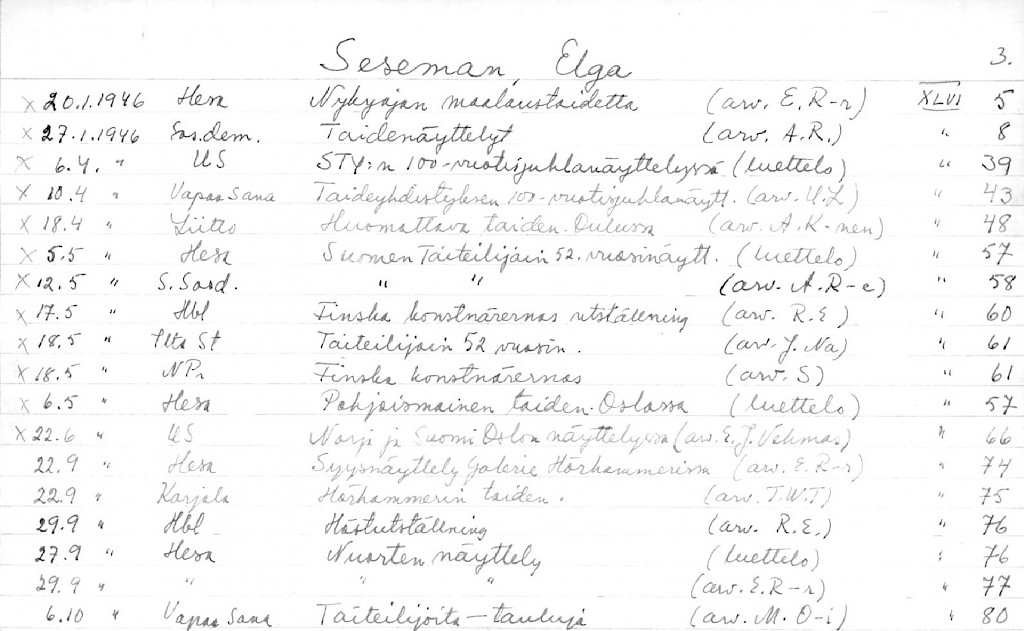 Seseman, Elga 3.
x 20.1.1946 Hesa Nykyajan maalaustaidetta (arv. E.R-r) XLVI 5
x 27.1.1946 Sos.dem. Taidenäyttelyt (arv. A.R.) " 8
x 6.4. " US STY:n 100-vuotisjuhlanäyttelyssä (luettelo) " 39
x 10.4 " Vapaa Sana Taideyhdistyksen 100-vuotisjuhlanäytt. (arv. U.L) " 43
x 18.4 " Liitto Huomattava taiden. Oulussa (arv. A.K-nen) " 48
x 5.5 " Hesa Suomen Taiteilijain 52. vuosinäytt. (luettelo) " 57
x 12.5 " S. Sosd. " " (arv. A.R-e) " 58
x 17.5 " Hbl Finska konstnärernas utställning (arv. R.E) " 60
x 18.5 " Ilta St Taiteilijain 52 vuosin. (arv. J. Na) " 61
x 18.5 " NPr Finska konstnärernas (arv. S) " 61
x 6.5 " Hesa Pohjoismainen taiden. Oslossa (luettelo) " 57
x 22.6 " US Norja ja Suomi Oslon näyttelyssä (arv. E.J. Vehmas) " 66
22.9 " Hesa Syysnäyttely Galerie Hörhammerissa (arv. E.R-r) " 74
22.9 " Karjala Hörhammerin taiden. (arv. T.W.T) " 75
29.9 " Hbl Höstutställning (arv. R.E.) " 76
27.9 " Hesa Nuorten näyttely (luettelo) " 76
29.9 " " " " (arv. E.R-r) " 77
6.10 " Vapaa Sana Taiteilijoita – tauluja (arv. M. O-i) " 80